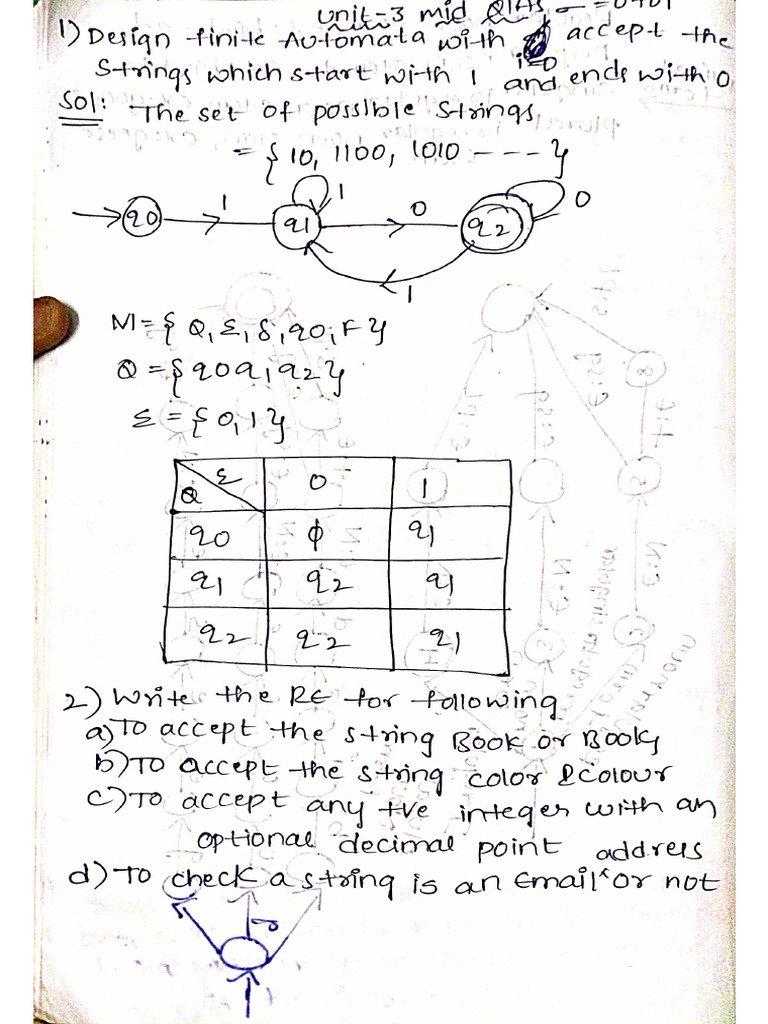 unit-3 mid
1) Design finite Automata with accept the
i=0
strings which start with 1 and ends with 0
Sol: The set of possible strings
= { 10, 1100, 1010 ---- }
q0 1 q1 1 0 q2 0
1
M = { Q, Σ, δ, q0, F }
Q = { q0 q1 q2 }
Σ = { 0, 1 }
Q Σ 0 1
q0 ϕ q1
q1 q2 q1
q2 q2 q1
2) Write the RE for following
a) To accept the string Book or Books
b) To accept the string color & colour
c) To accept any +ve integer with an
optional decimal point address
d) To check a string is an Email or not